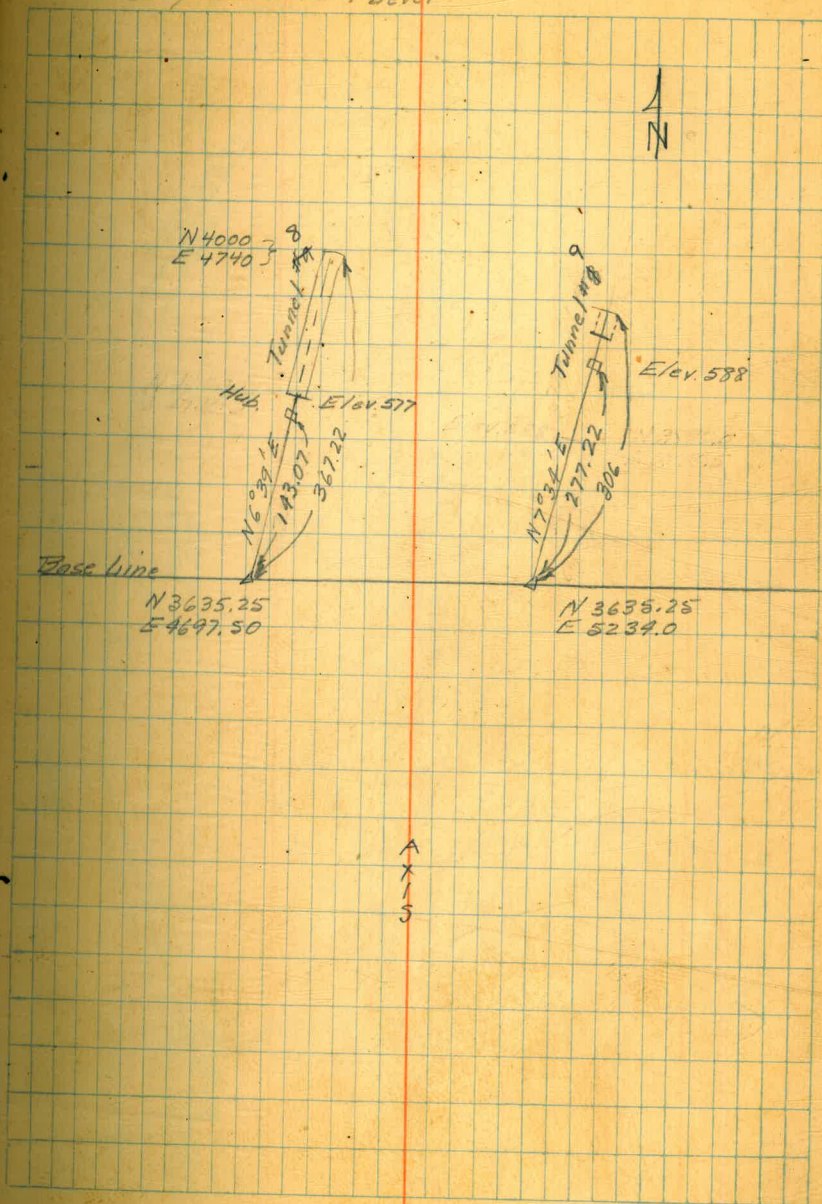 N
N 4000
E 4740
8
Tunnel #
Hub.
Elev. 577
N 6° 39' E
143.07
367.22
9
Tunnel #
Elev. 588
N 7° 34' E
277.22
306
Base Line
N 3635.25
E 4697.50
N 3635.25
E 5234.0
A
X
I
S